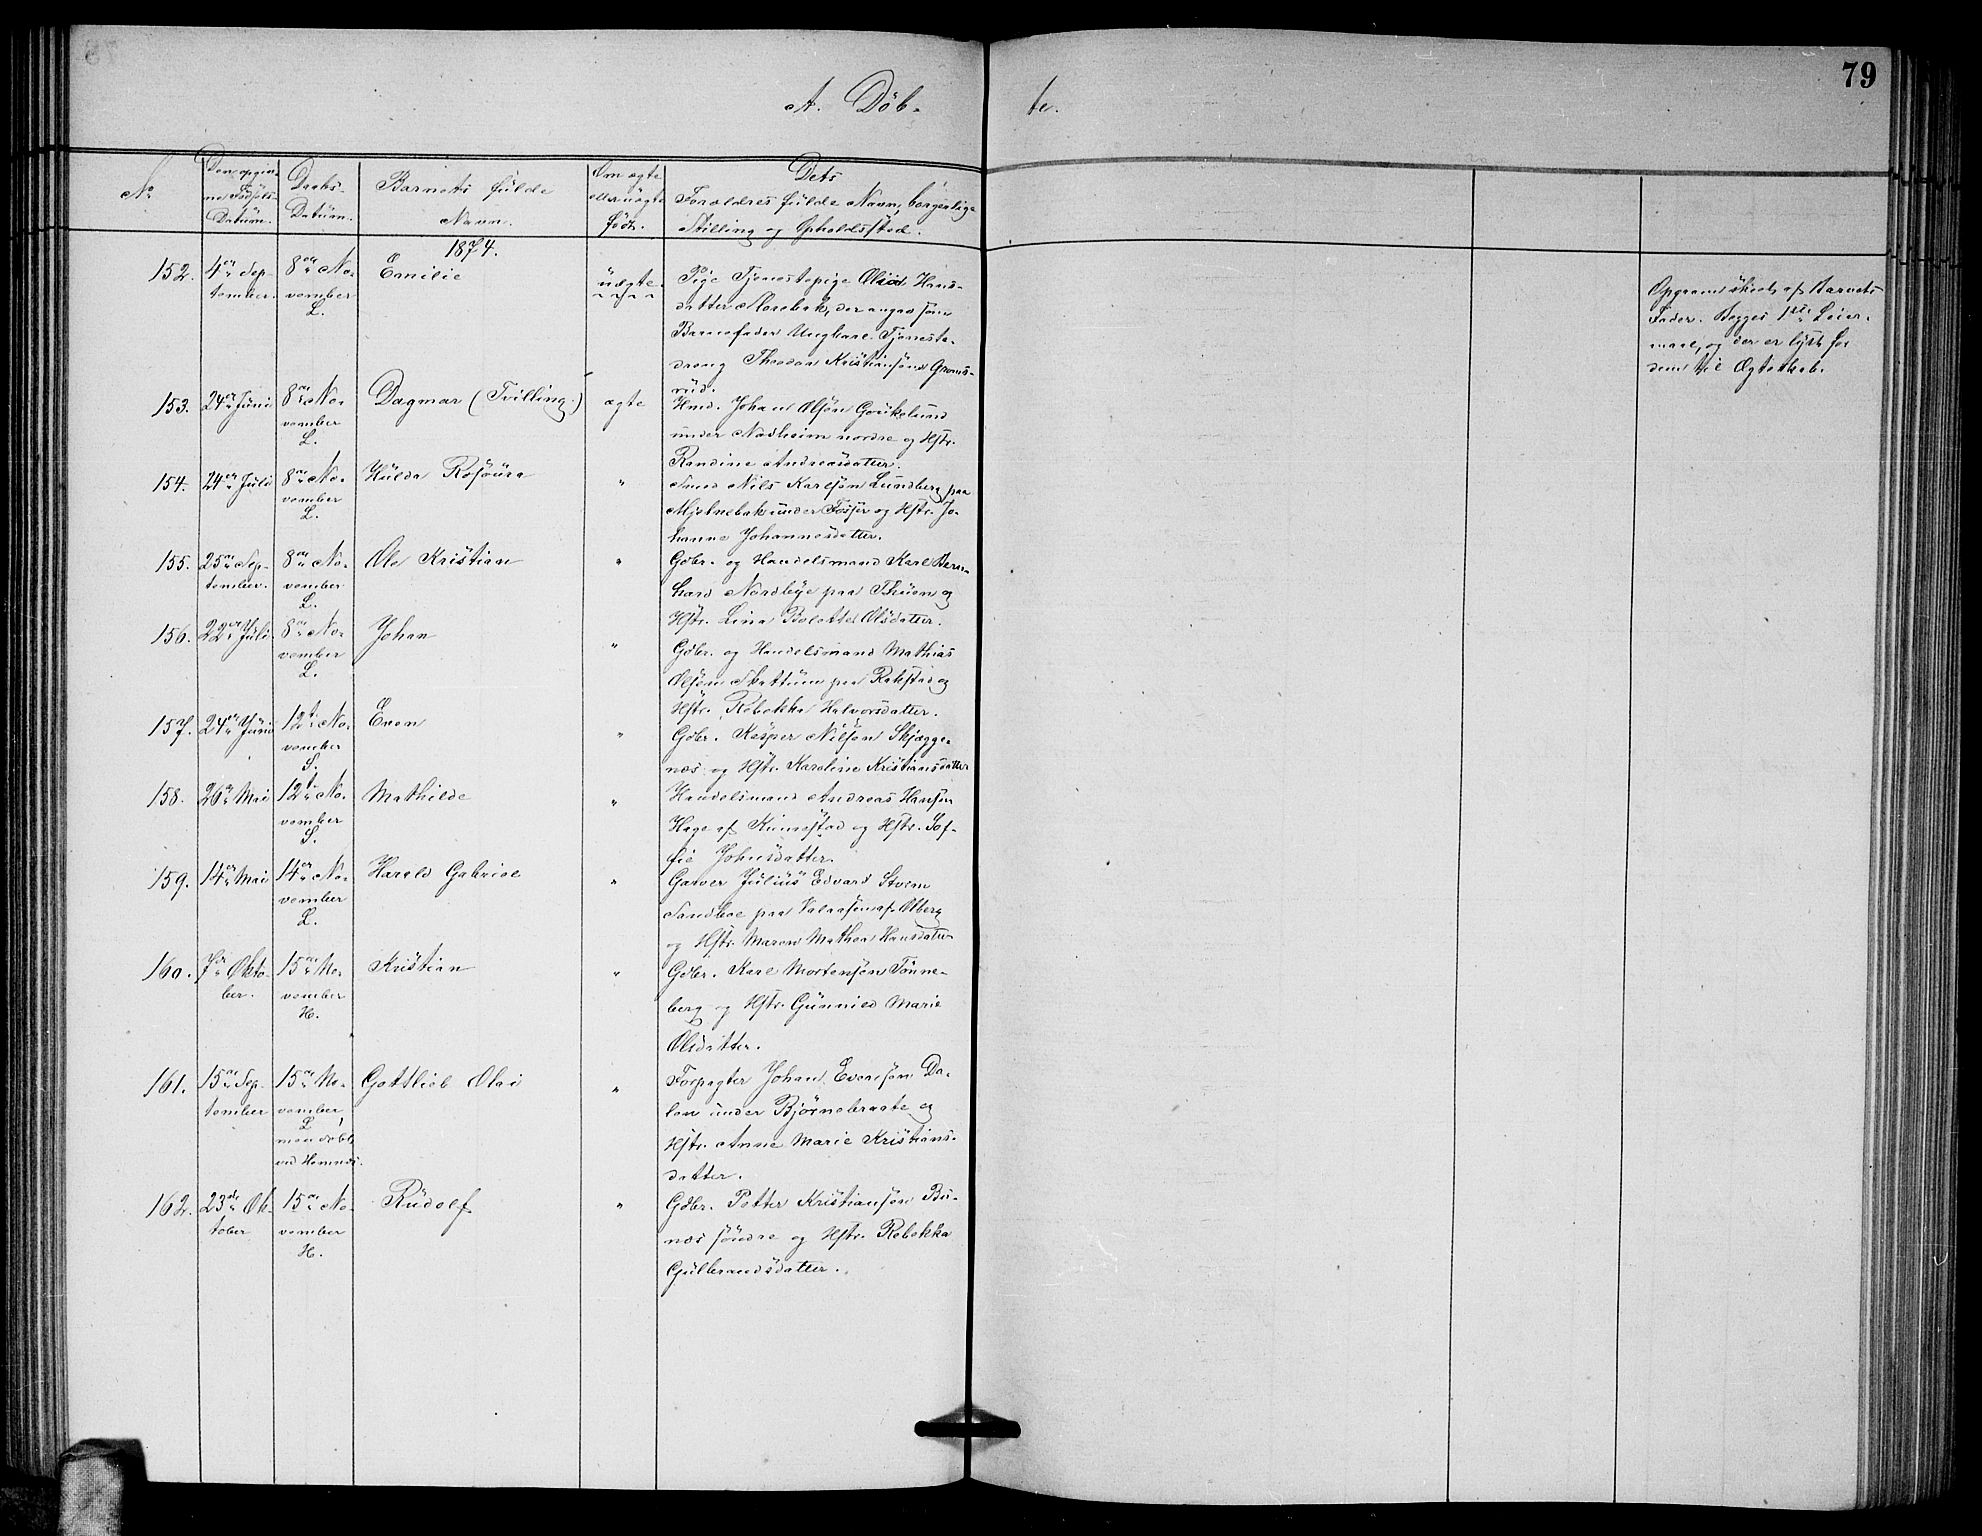 79
A. Döb- te.
No
Den opgiv-
ne Födsels-
Datum.
Daabs-
Datum.
Barnets fulde
Navn.
Om ægte
eller uægte
född.
Dets
Forældres fulde Navn, borgerlige
Stilling og Opholdssted.
1874.
152.
4de Sep-
tember.
8de No-
vember
L.
Emilie
uægte.
Pige Tjenestepige Hans-
datter Morebak, der angav som
Barnefader Ungkarl Tjeneste-
dreng Theodor Kristiansøn Groms-
rud.
Opgaven skeet af Barnets
Fader. Begges 1ste Leier-
maal, og der er lyst for
dem til Ægteskab.
153.
24de Juni
8de No-
vember
L.
Dagmar (Tvilling.)
ægte
Hmd. Johan Olsøn Goukelund
under Nadheim nordre og Hstr.
Randine Andreasdatter.
154.
24de Juli
8de No-
vember
L.
Hulda Rosoura
"
Smed Nils Karlsøn Lundberg paa
Mjelnebak under Fosser og Hstr. Jo-
hanne Johannesdatter.
155.
25de Sep-
tember.
8de No-
vember
L.
Ole Kristian
"
Gdbr. og Handelsmand Karl Bern-
hard Nordbye paa Thuen og
Hstr. Lina Bolette Olsdatter.
156.
22de Juli.
8de No-
vember
L.
Johan
"
Gdbr. og Handelsmand Mathias
Olsøn Skattum paa Rakstad og
Hstr. Rebekka Halvorsdatter.
157.
24de Juni
12te No-
vember
S.
Even
"
Gdbr. Kasper Nilsøn Skjægge-
næs og Hstr. Karoline Kristiansdatter
158.
26de Mai
12te No-
vember
S.
Mathilde
"
Handelsmand Andreas Hansøn
Hage af Kinnestad og Hstr. Sof-
fie Johnsdatter.
159.
14de Mai
14de No-
vember
L.
Harald Gabriel
"
Garver Julius Edvard Strøm
Sandboe paa Valaasen af Olberg
og Hstr. Maren Mathea Hansdatter
160.
7de Okto-
ber.
15de No-
vember
H.
Kristian
"
Gdbr. Karl Mortensøn Tønne-
berg og Hstr. Gunnild Marie
Olsdatter.
161.
15de Sep-
tember
15de No-
vember
L,
men döbt
ved Hemnæs.
Gottlieb Olai
"
Forpagter Johan Evensøn Da-
len under Bjørnebraate og
Hstr. Anne Marie Kristians-
datter.
162.
23de Ok-
tober
15de No-
vember
H.
Rudolf
"
Gdbr. Petter Kristiansøn Bu-
næs søndre og Hstr. Rebekka
Gulbrandsdatter.